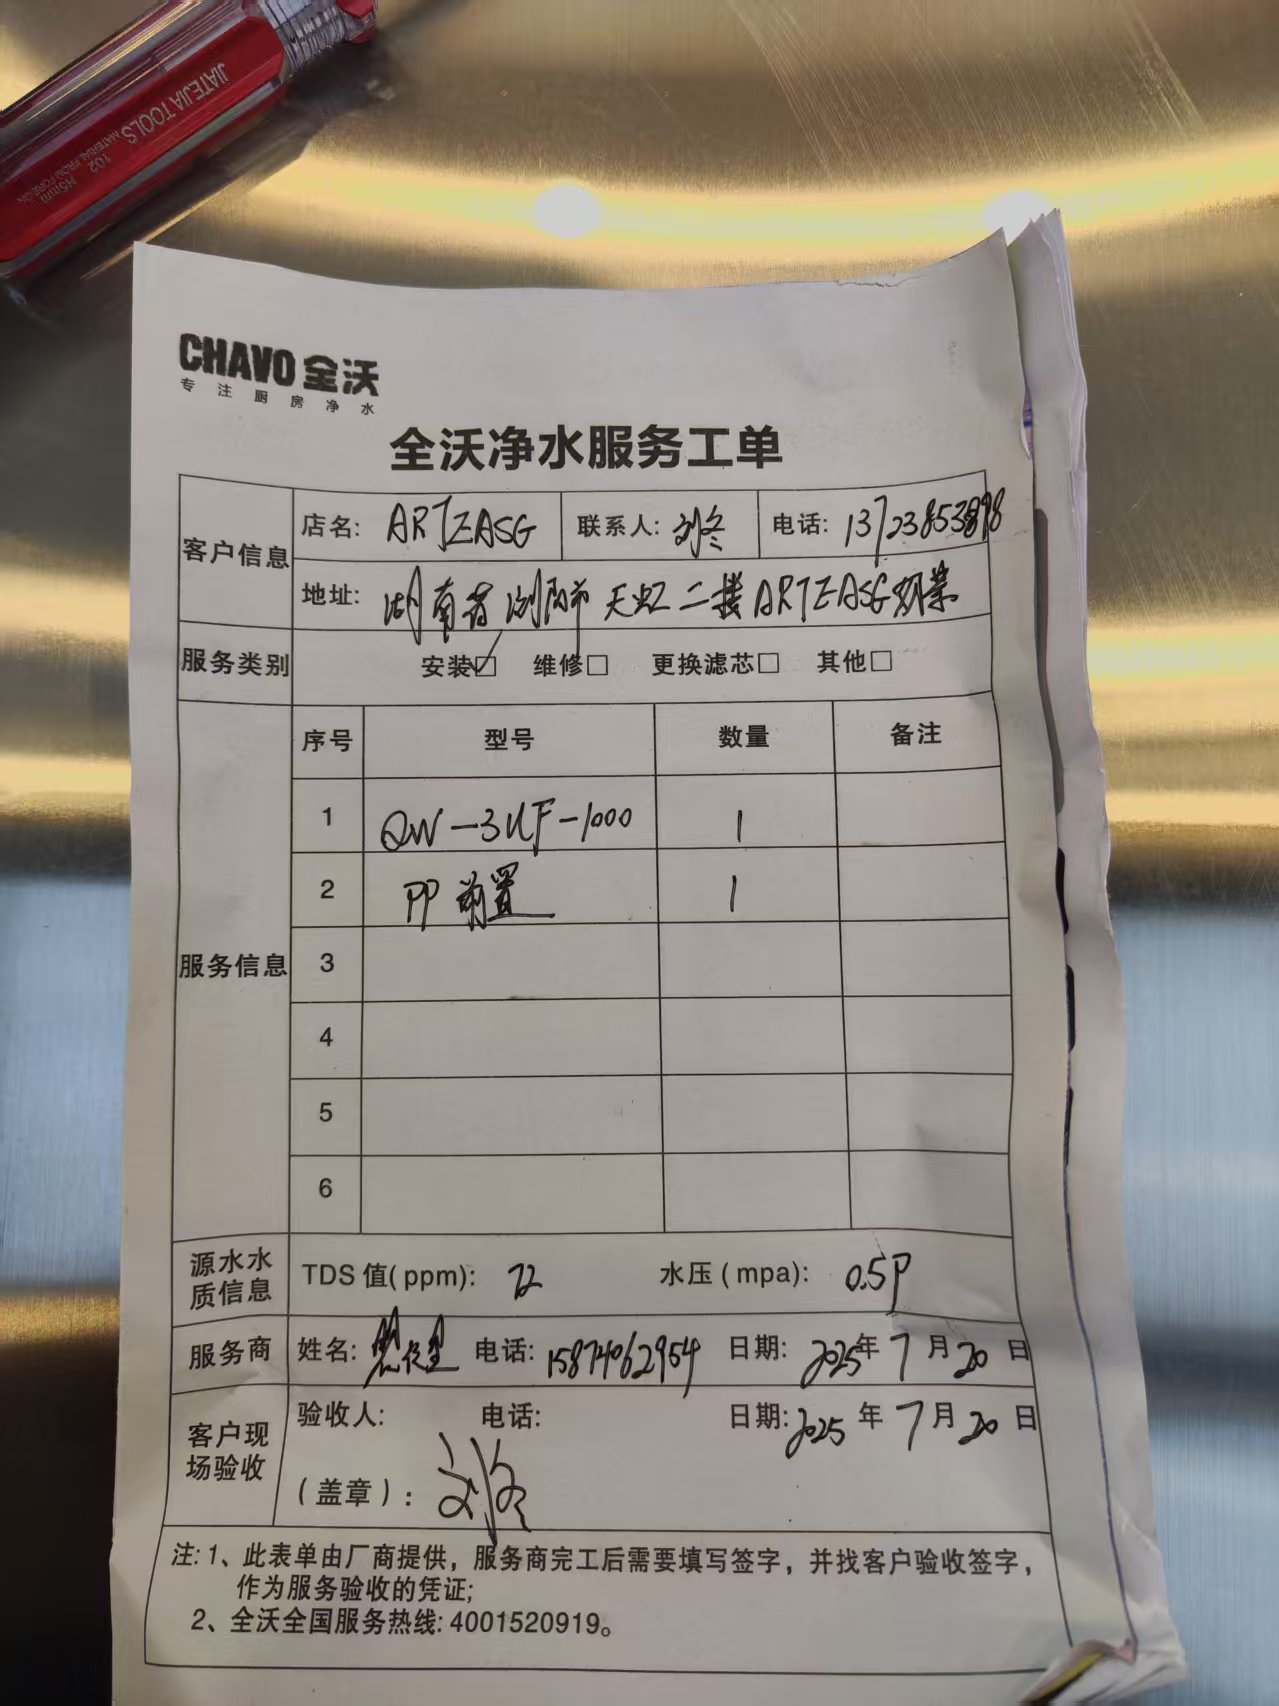 JIATEJIA TOOLS
MATERIAL FROM FOREIGN
102
H5mm
CHAVO 全沃
专注厨房净水
全沃净水服务工单
客户信息
店名: ARTEASG 联系人: 刘冬 电话: 13723853898
地址: 湖南省浏阳 天虹二楼ARTEASG奶茶
服务类别 安装☑ 维修□ 更换滤芯□ 其他□
服务信息
序号 型号 数量 备注
1 QW-3UF-1000 1
2 PP前置 1
3
4
5
6
源水水质信息 TDS值(ppm): 72 水压(mpa): 0.5P
服务商 姓名: 电话: 15874062954 日期: 2025年7月20日
客户现场验收 验收人: 电话: 日期: 2025年7月20日
(盖章): 刘冬
注: 1、此表单由厂商提供，服务商完工后需要填写签字，并找客户验收签字，
作为服务验收的凭证;
2、全沃全国服务热线: 4001520919。